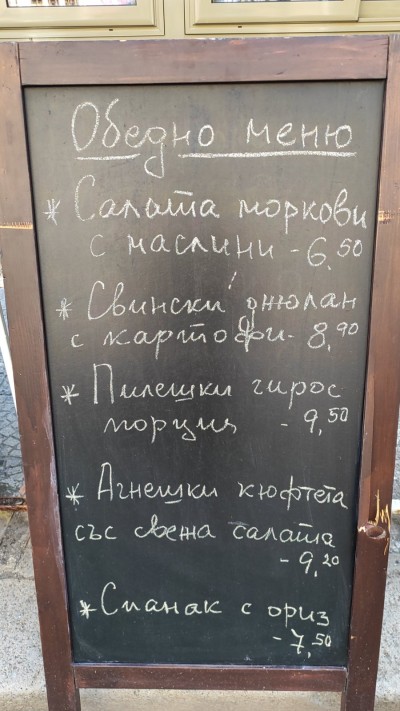 Обедно меню
* Салата моркови
с маслини - 6,50
* Свински джолан
с картофи - 8,90
* Пилешки гирос
порция - 9,50
* Агнешки кюфтета
със свежа салата
- 9,20
* Спанак с ориз
- 7,50